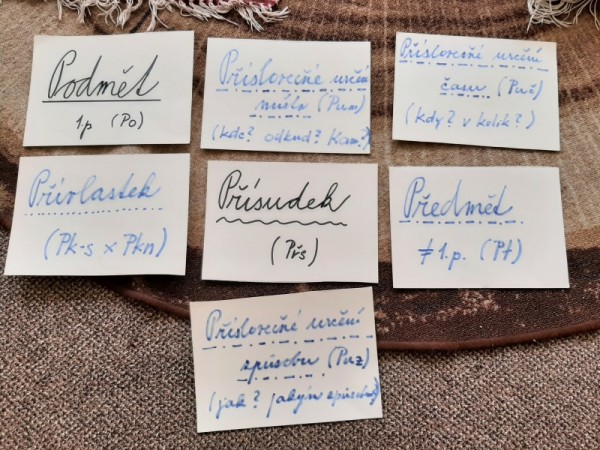 Podmět
1.p (Po)
Příslovečné určení
místa (Pum)
(kde? odkud? Kam?)
Příslovečné určení
času (Puč)
(kdy? v kolik?)
Přívlastek
(Pk-s x Pkn)
Přísudek
(Přs)
Předmět
≠ 1.p. (Pt)
Příslovečné určení
způsobu (Puz)
(jak? jakým způsobem?)